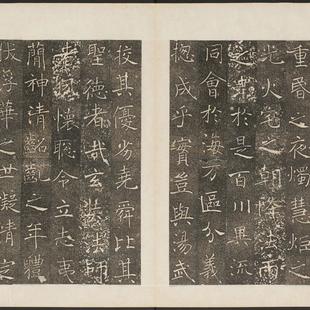 重昏之夜燭慧炬之
光火宅之朝降法雨
之於是百川異流
同會於海万區分義
惣成乎實豈與湯武
挍其優劣堯舜比其
聖德者哉玄奘法師
者懷聰令立志夷
簡神清齠齔之年體
拔浮華之世凝情定